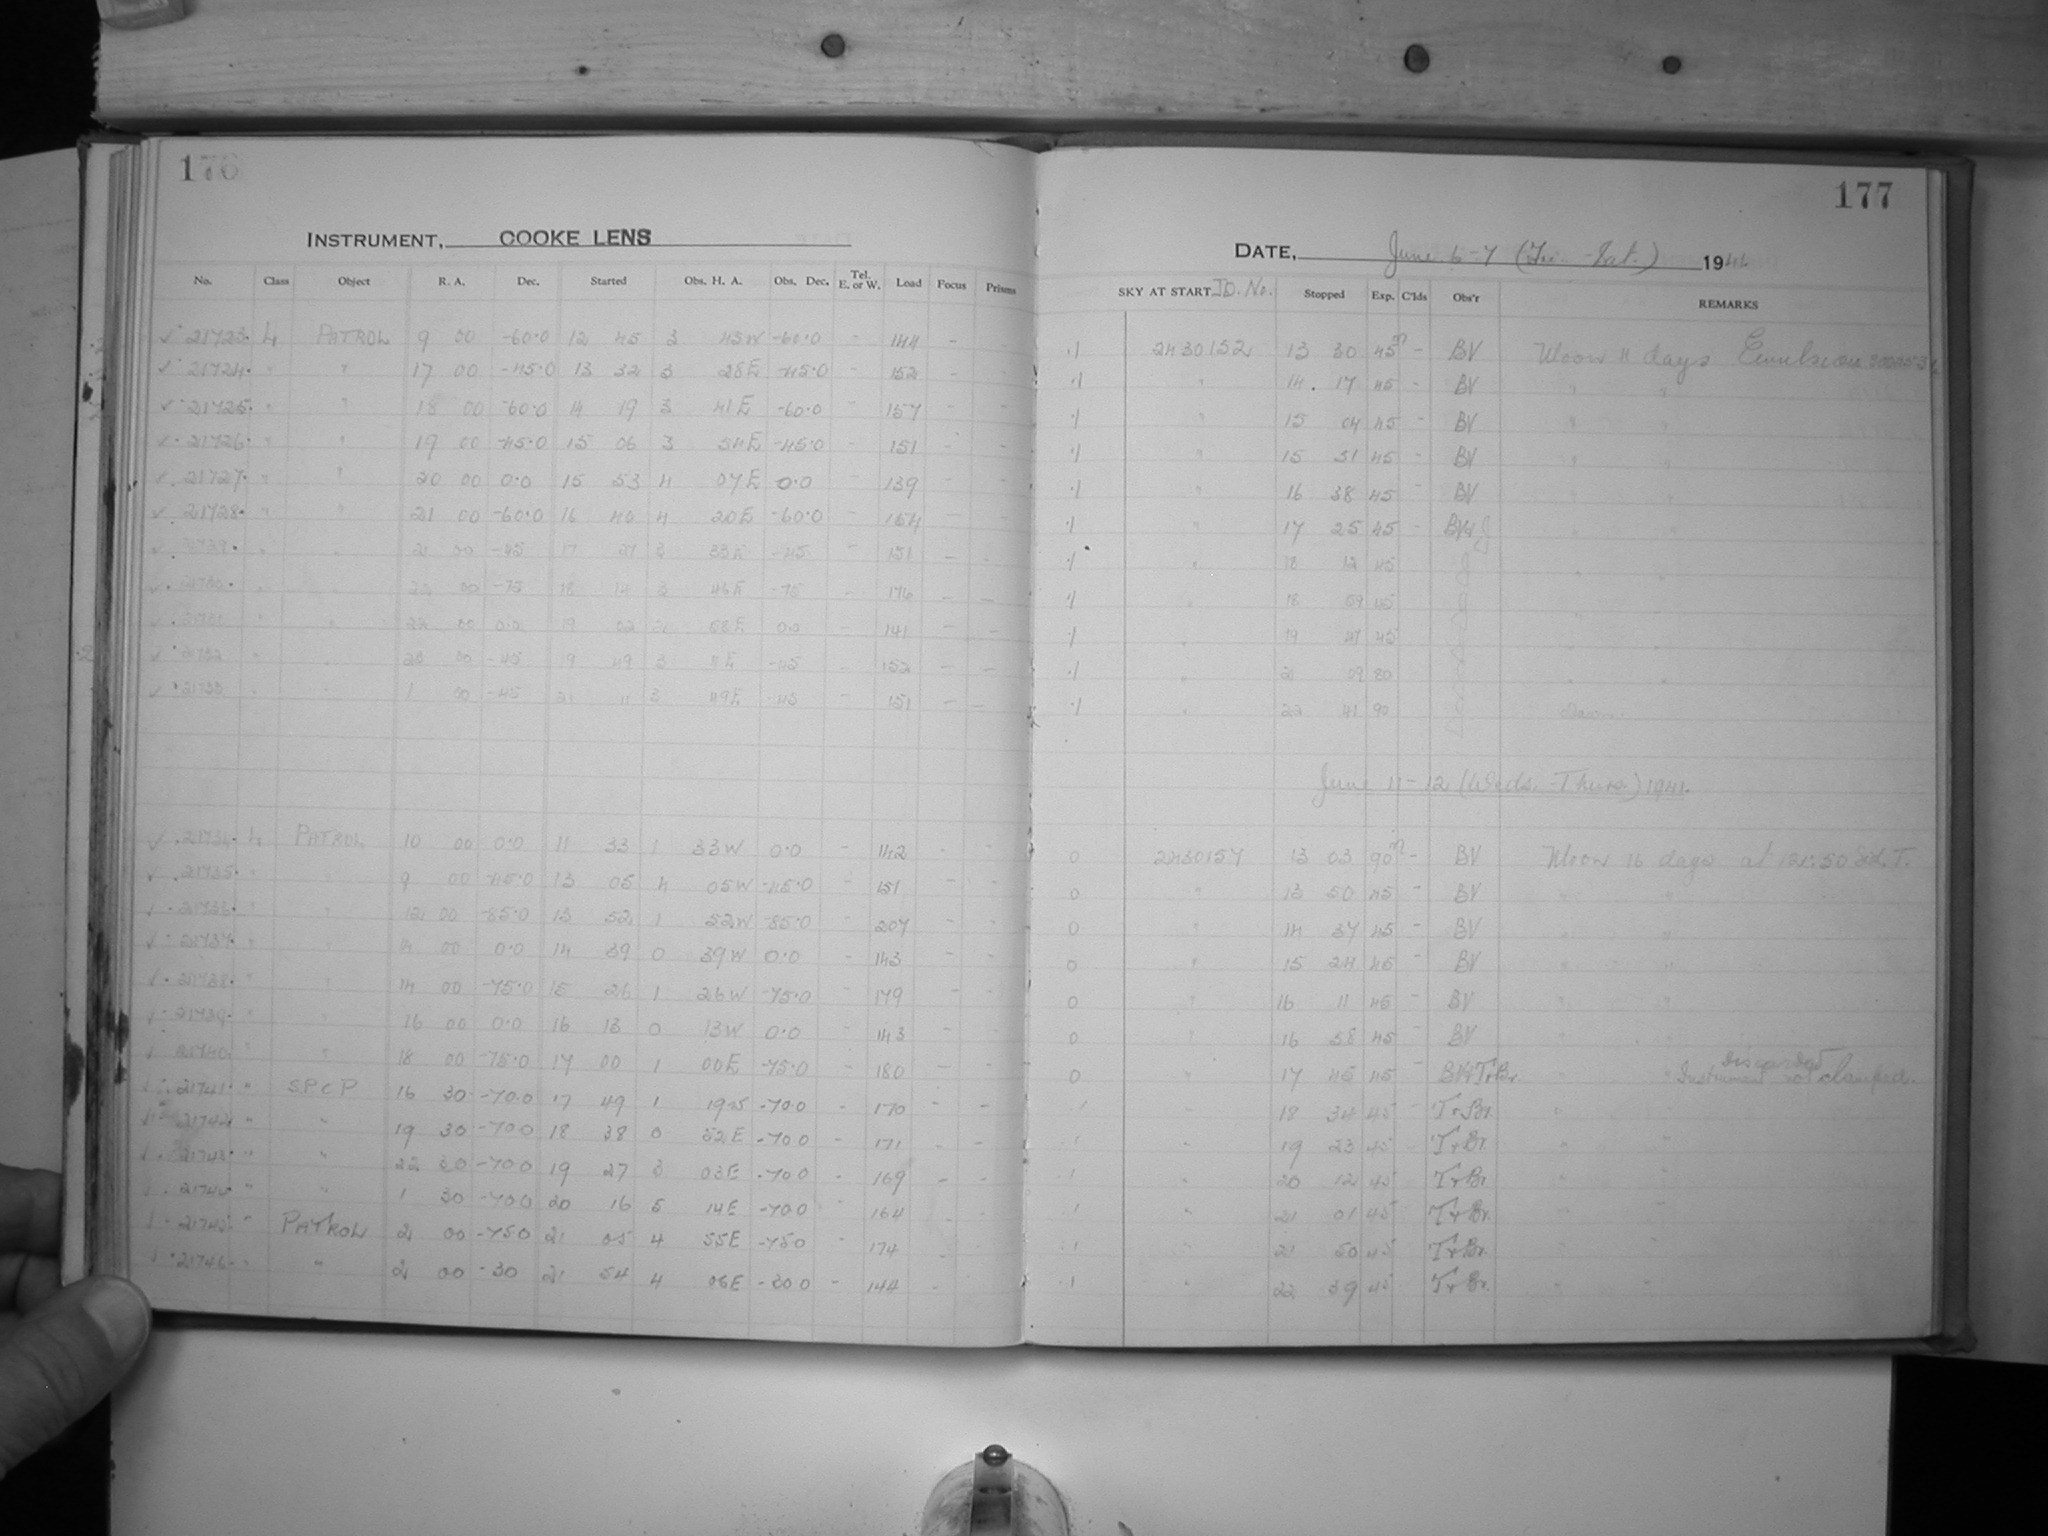 176
INSTRUMENT, COOKE LENS
No. Class Object R. A. Dec. Started Obs. H. A. Obs. Dec. Tel. E. or W. Load Focus Prisms
✓ 21723 4 PATROL 9 00 -60.0 12 45 3 45W -60.0 - 144 - -
✓ 21724 " " 17 00 -45.0 13 32 3 28E -45.0 - 152 - -
✓ 21725 " " 18 00 -60.0 14 19 3 41E -60.0 - 157 - -
✓ 21726 " " 19 00 -45.0 15 06 3 54E -45.0 - 151 - -
✓ 21727 " " 20 00 0.0 15 53 4 07E 0.0 - 139 - -
✓ 21728 " " 21 00 -60.0 16 40 4 20E -60.0 - 154 - -
✓ 21729 " " 21 00 -45 17 27 3 33E -45 - 151 - -
✓ 21730 " " 22 00 -75 18 14 3 46E -75 - 176 - -
✓ 21731 " " 22 00 0.0 19 02 2 58E 0.0 - 141 - -
✓ 21732 " " 23 00 -45 19 49 3 11E -45 - 152 - -
✓ 21733 " " 1 00 -45 21 11 3 49E -45 - 151 - -
✓ 21734 4 PATROL 10 00 0.0 11 33 1 33W 0.0 - 142 - -
✓ 21735 " " 9 00 -45.0 13 05 4 05W -45.0 - 151 - -
✓ 21736 " " 12 00 -85.0 13 52 1 52W -85.0 - 207 - -
✓ 21737 " " 14 00 0.0 14 39 0 39W 0.0 - 143 - -
✓ 21738 " " 14 00 -75.0 15 26 1 26W -75.0 - 179 - -
✓ 21739 " " 16 00 0.0 16 13 0 13W 0.0 - 143 - -
✓ 21740 " " 18 00 -75.0 17 00 1 00E -75.0 - 180 - -
✓ 21741 " S.P.C P 16 30 -70.0 17 49 1 -70.0 - 170 - -
✓ 21742 " " 19 30 -70.0 18 38 0 52E -70.0 - 171 - -
✓ 21743 " " 22 30 -70.0 19 27 3 03E -70.0 - 169 - -
✓ 21744 " " 1 30 -70.0 20 16 5 14E -70.0 - 164 - -
✓ 21745 " PATROL 2 00 -75.0 21 05 4 55E -75.0 - 174 - -
✓ 21746 " " 2 00 -30 21 54 4 06E -30.0 - 144 - -
177
DATE, June 6-7 (Fri. -Sat.) 19
SKY AT START JD. No. Stopped Exp. C'lds Obs'r REMARKS
.1 2430152 13 30 45m - BV Moon 11 days Emulsion
.1 " 14 17 45 - BV " "
.1 " 15 04 45 - BV " "
.1 " 15 51 45 - BV " "
.1 " 16 38 45 - BV
.1 " 17 25 45 - BV&J
.1 " 18 12 45 J
.1 " 18 59 45 J
.1 " 19 47 45 J
.1 " 21 09 80 J
.1 " 22 41 90 J Dawn
June 11-12 (Weds. -Thurs.) 1941.
0 2430157 13 03 90m - BV Moon 16 days at 12h:50 Sid. T.
0 " 13 50 45 - BV " "
0 " 14 37 45 - BV " "
0 " 15 24 45 - BV " "
0 " 16 11 45 - BV " "
0 " 16 58 45 - BV " "
0 " 17 45 45 - BV&TrBr " Instrument not clamped.
.1 " 18 34 45 - TrBr. " "
.1 " 19 23 45 - TrBr. " "
.1 " 20 12 45 TrBr " "
.1 " 21 01 45 TrBr. " "
.1 " 21 50 45 TrBr. " "
.1 " 22 39 45 TrBr. " "